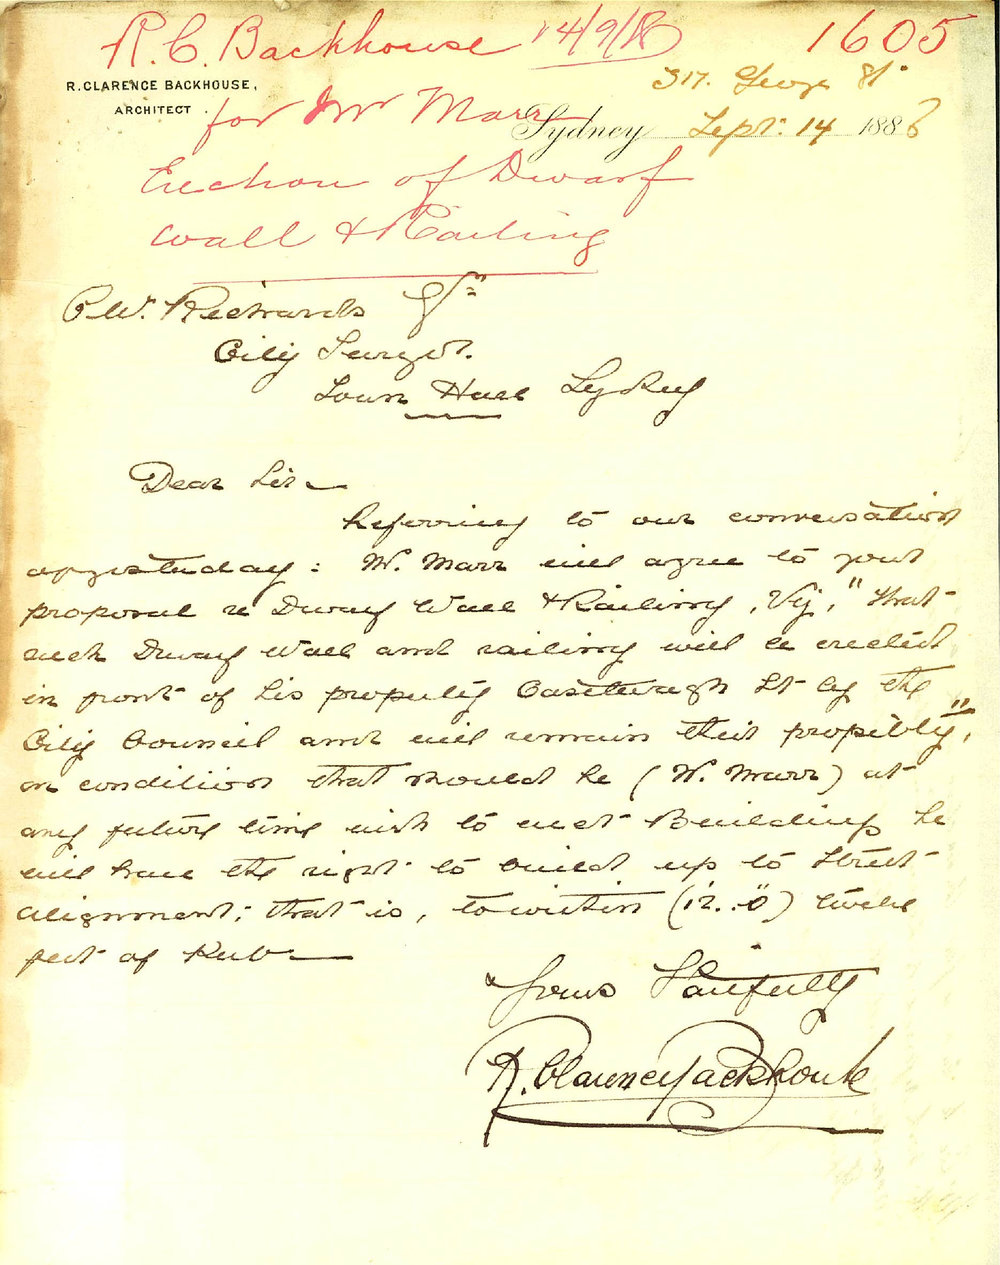 R. C. Backhouse 14/9/86
1605
R. CLARENCE BACKHOUSE,
ARCHITECT.
317. George St.
for Mr Marr
Sydney Sept: 14 1886
Erection of Dwarf
Wall & Railing
P.W. Richards Esq
City Surveyor.
Town Hall Sydney
Dear Sir
Referring to our conversation
of yesterday: Mr. Marr will agree to your
proposal re Dwarf Wall & Railing, Viz, "that
such Dwarf Wall and railing will be erected
in front of his property Castlereagh St by the
City Council and will remain their property",
on condition that should he (Mr. Marr) at
any future time wish to erect Buildings he
will have the right to build up to Street
alignment; that is, to within (12..0") twelve
feet of Kerb
Yours Faithfully
R. Clarence Backhouse